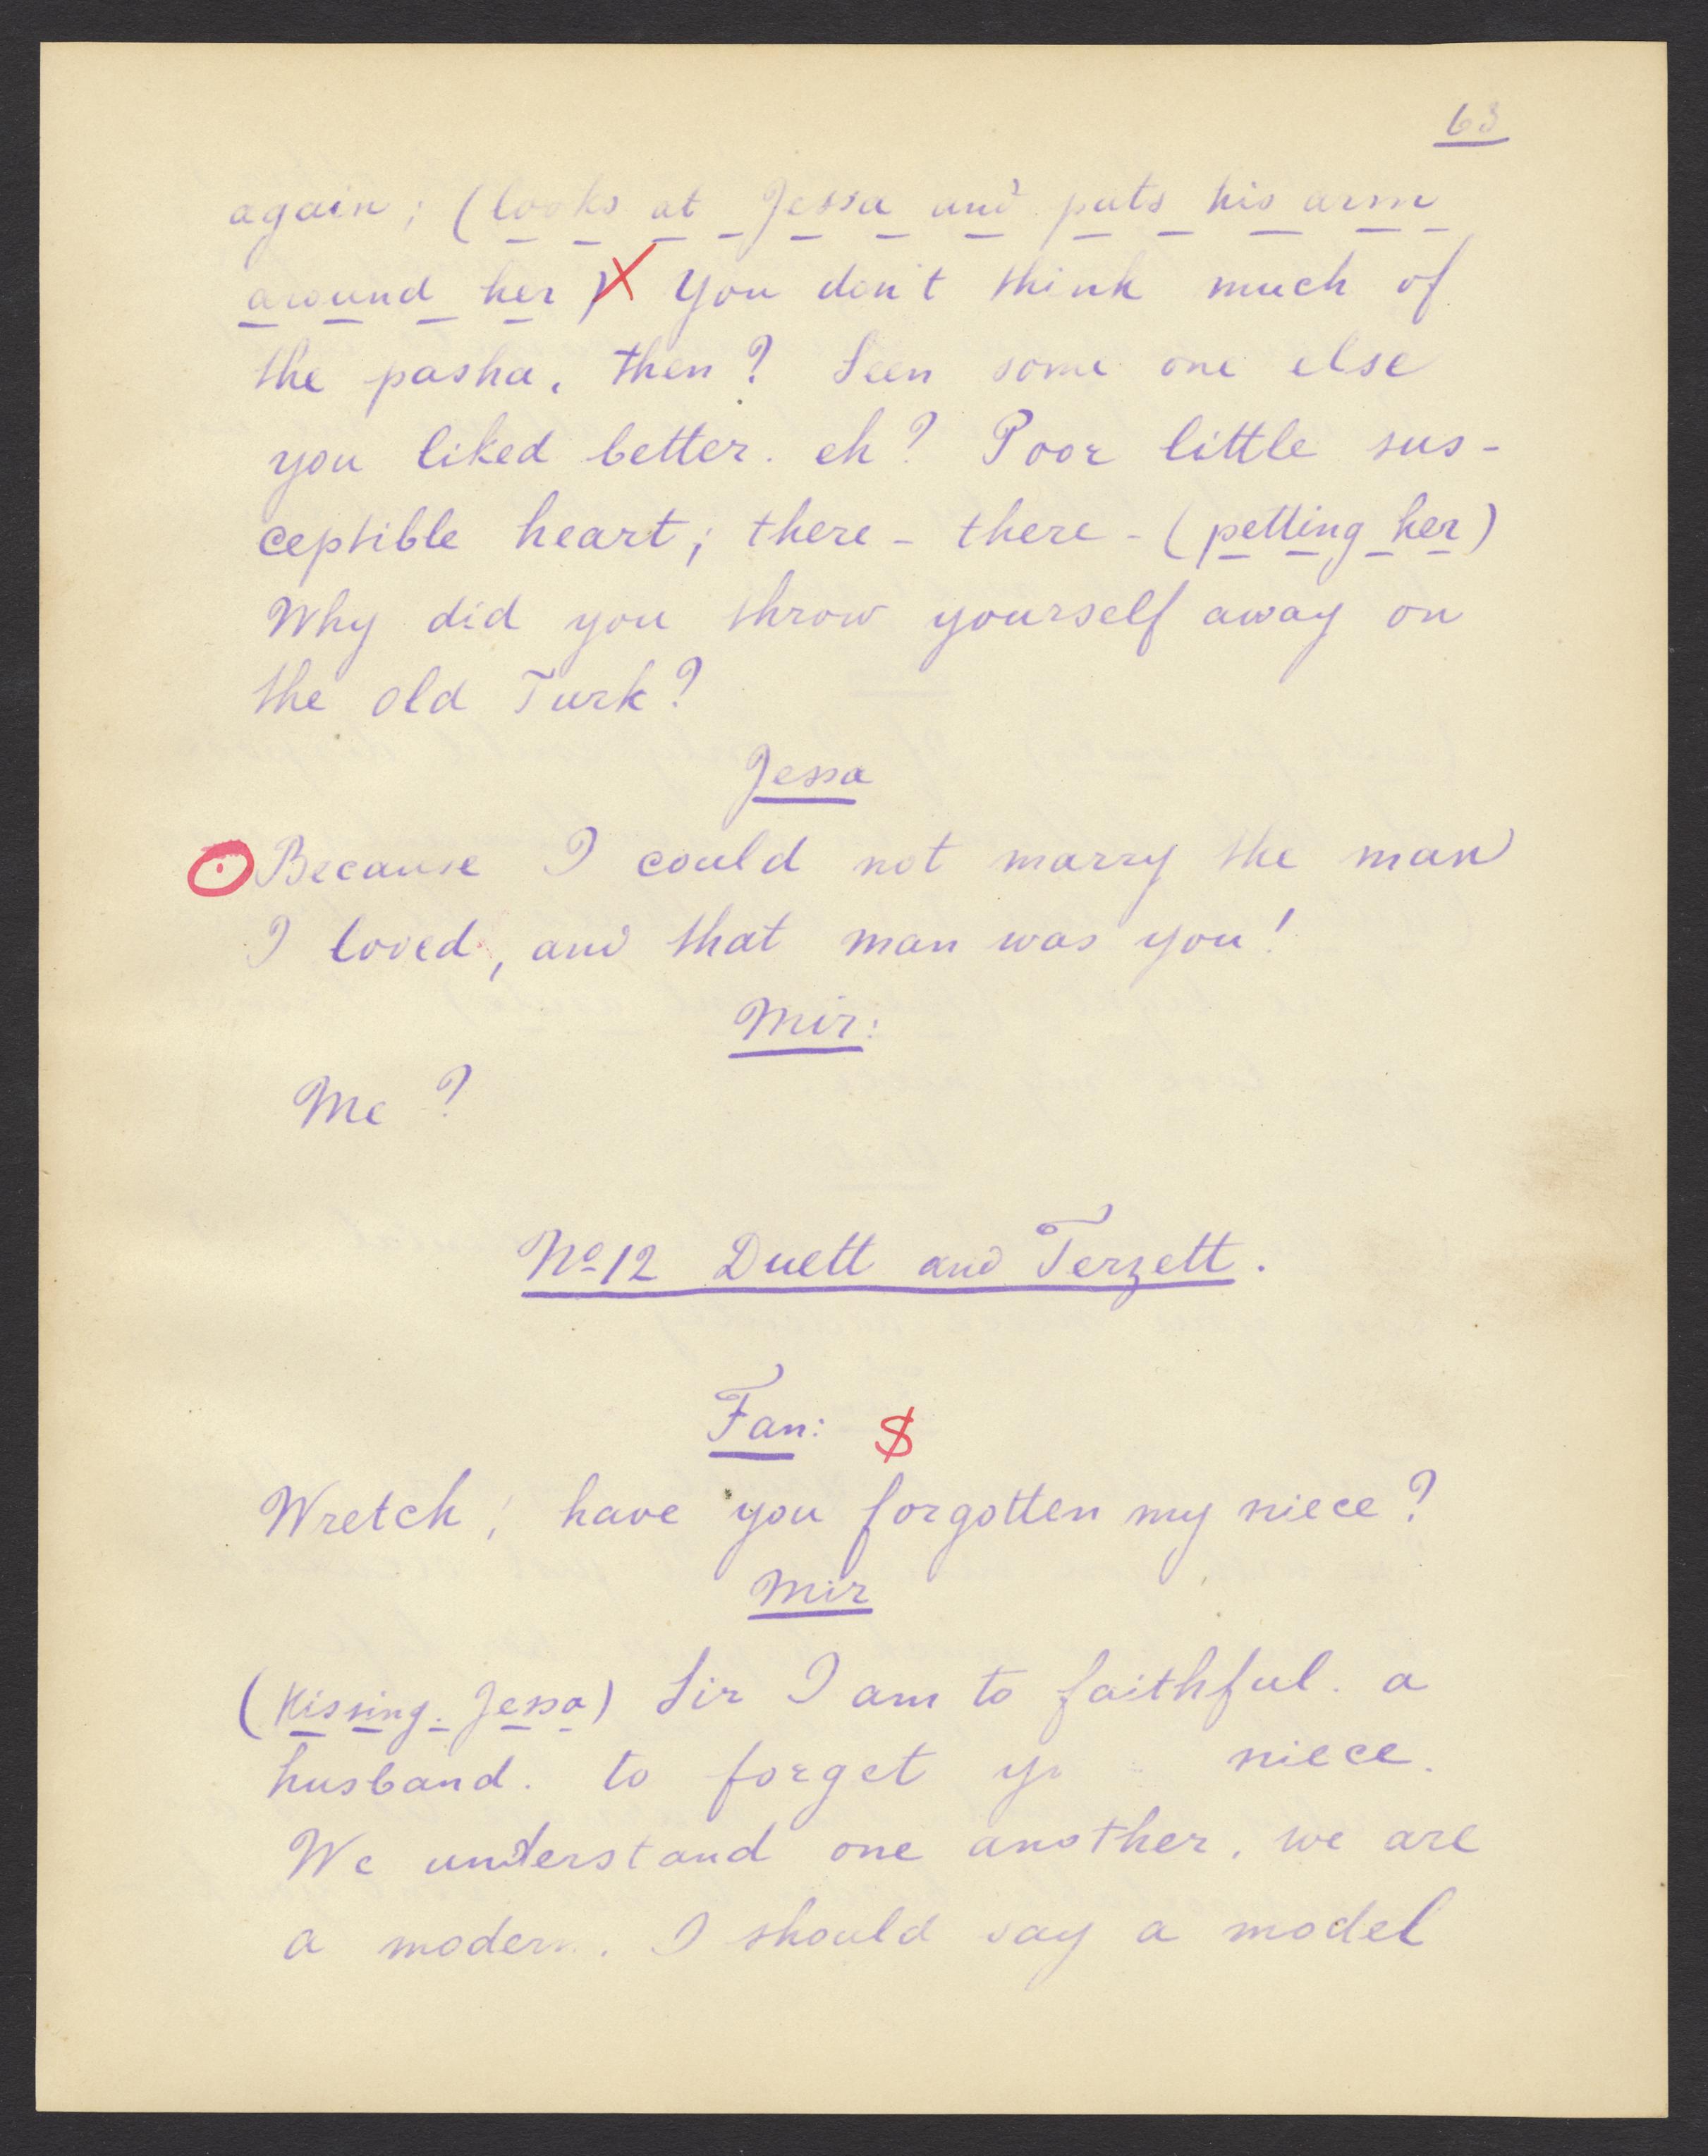 63
again; (looks at Jessa and puts his arm
around her) X You don't think much of
the pasha, then? Seen some one else
you liked better. eh? Poor little sus-
ceptible heart; there - there - (petting her)
Why did you throw yourself away on
the old Turk?
Jessa
⊙ Because I could not marry the man
I loved, and that man was you!
Mir:
Me?
No 12 Duett and Terzett.
Fan: $
Wretch! have you forgotten my niece?
Mir
(Kissing. Jessa) Sir I am to faithful. a
husband. to forget niece.
We understand one another, we are
a modern. I should say a model